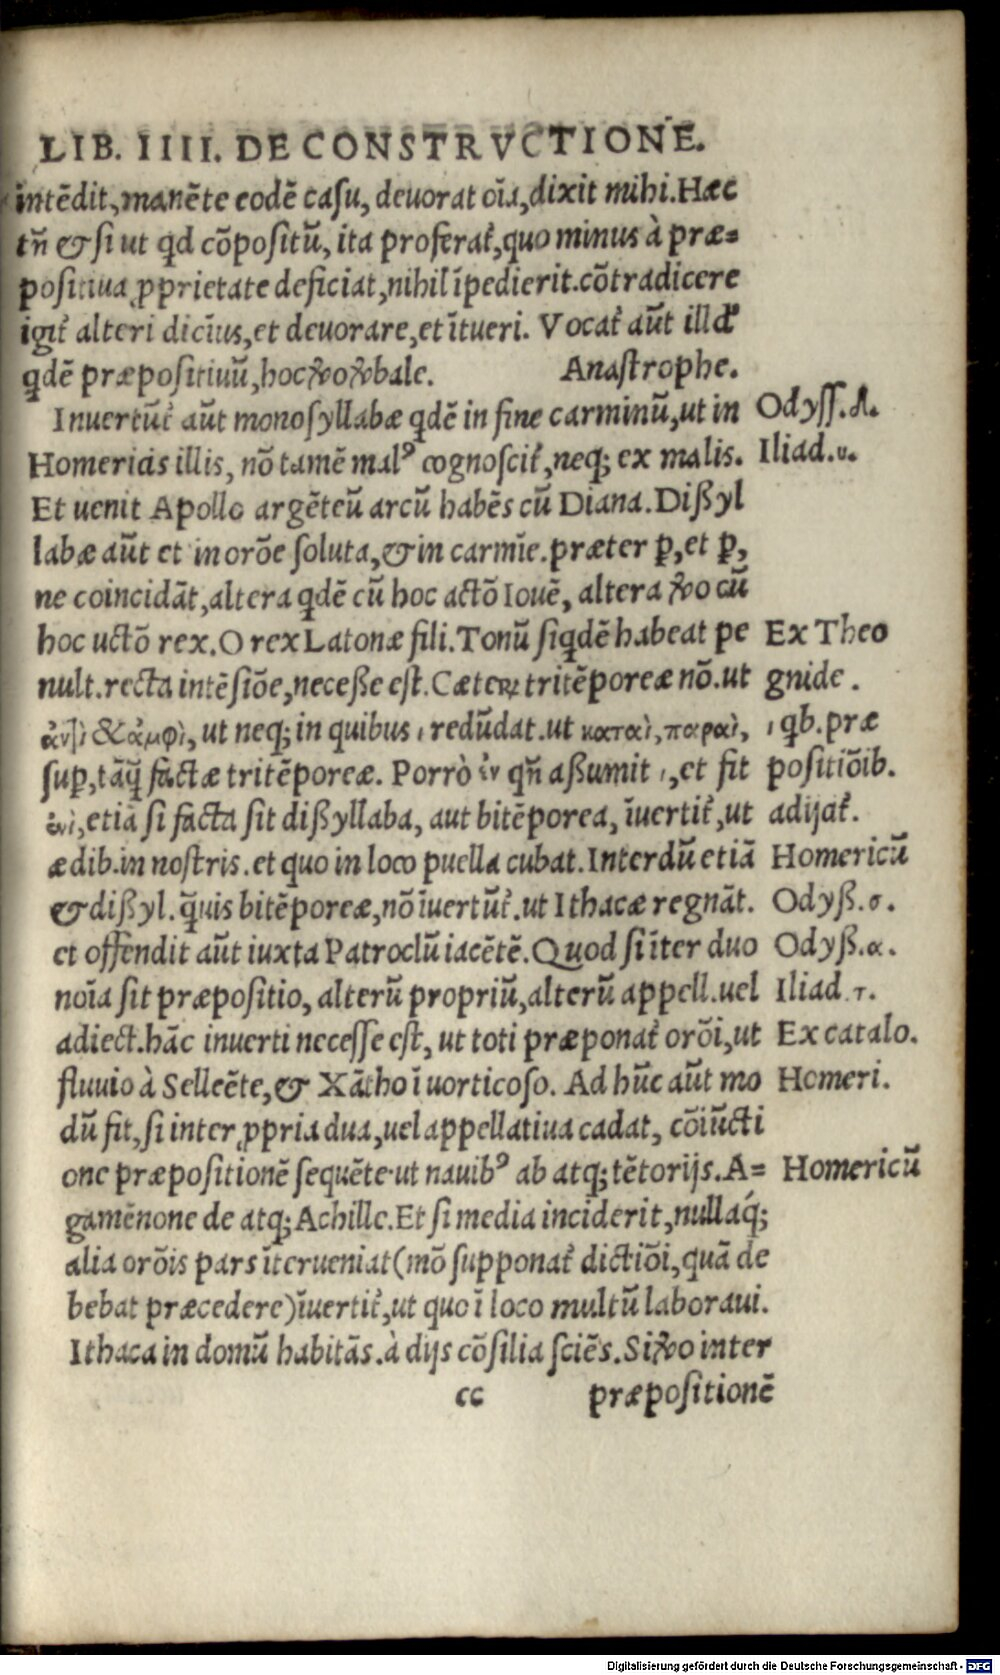 LIB. IIII. DE CONSTRVCTIONE.
intēdit, manēte eodē casu, deuorat oīa, dixit mihi. Hæc
tñ & si ut qd cōpositū, ita proferat̃, quo minus à præ=
positiua ꝓprietate deficiat, nihil īpedierit. cōtradicere
igit̃ alteri dicīus, et deuorare, et ītueri. Vocat̃ aūt illd
qdē præpositiuū, hoc ꝟo ꝟbale. Anastrophe.
Inuertūt̃ aūt monosyllabæ qdē in fine carminū, ut in Odyss. λ.
Homericis illis, nō tamē malꝰ cognoscit̃, neq; ex malis. Iliad. υ.
Et uenit Apollo argēteū arcū habēs cū Diana. Dißyl
labæ aūt et in orōe soluta, & in carmīe. præter ꝑ, et ꝑ,
ne coincidāt, altera qdē cū hoc actō Iouē, altera ꝟo cū
hoc uctō rex. O rex Latonæ fili. Tonū siqdē habeat pe Ex Theo
nult. recta intēsiōe, neceße est. Cæteꝝ tritēporeæ nō. ut gnide.
ἀντὶ & ἀμφὶ, ut neq; in quibus ι redūdat. ut καταὶ, παραὶ, ι qb. præ
suꝑ, tāq̄ factæ tritēporeæ. Porrò ἐν qñ aßumit ι, et fit positiōib.
ἐνὶ, etiā si facta sit dißyllaba, aut bitēporea, īuertit̃, ut adijat̃.
ædib. in nostris. et quo in loco puella cubat. Interdū etiā Homericū
& dißyl. q̄uis bitēporeæ, nō īuertūt̃. ut Ithacæ regnāt. Odyß. σ.
et offendit aūt iuxta Patroclū iacētē. Quod si īter duo Odyß. α.
noīa sit præpositio, alterū propriū, alterū appell. uel Iliad. τ.
adiect. hāc inuerti necesse est, ut toti præponat̃ orōi, ut Ex catalo.
fluuio à Selleēte, & Xātho ī uorticoso. Ad hūc aūt mo Homeri.
dū fit, si inter ꝓpria dua, uel appellatiua cadat, cōiūcti
one præpositionē sequēte. ut nauibꝰ ab atq; tētorijs. A= Homericū
gamēnone de atq; Achille. Et si media inciderit, nullaq́;
alia orōis pars īterueniat (mō supponat̃ dictiōi, quā de
bebat præcedere) īuertit̃, ut quo ī loco multū laboraui.
Ithaca in domū habitās. à dijs cōsilia sciēs. Si ꝟo inter
cc præpositionē
Digitalisierung gefördert durch die Deutsche Forschungsgemeinschaft - DFG